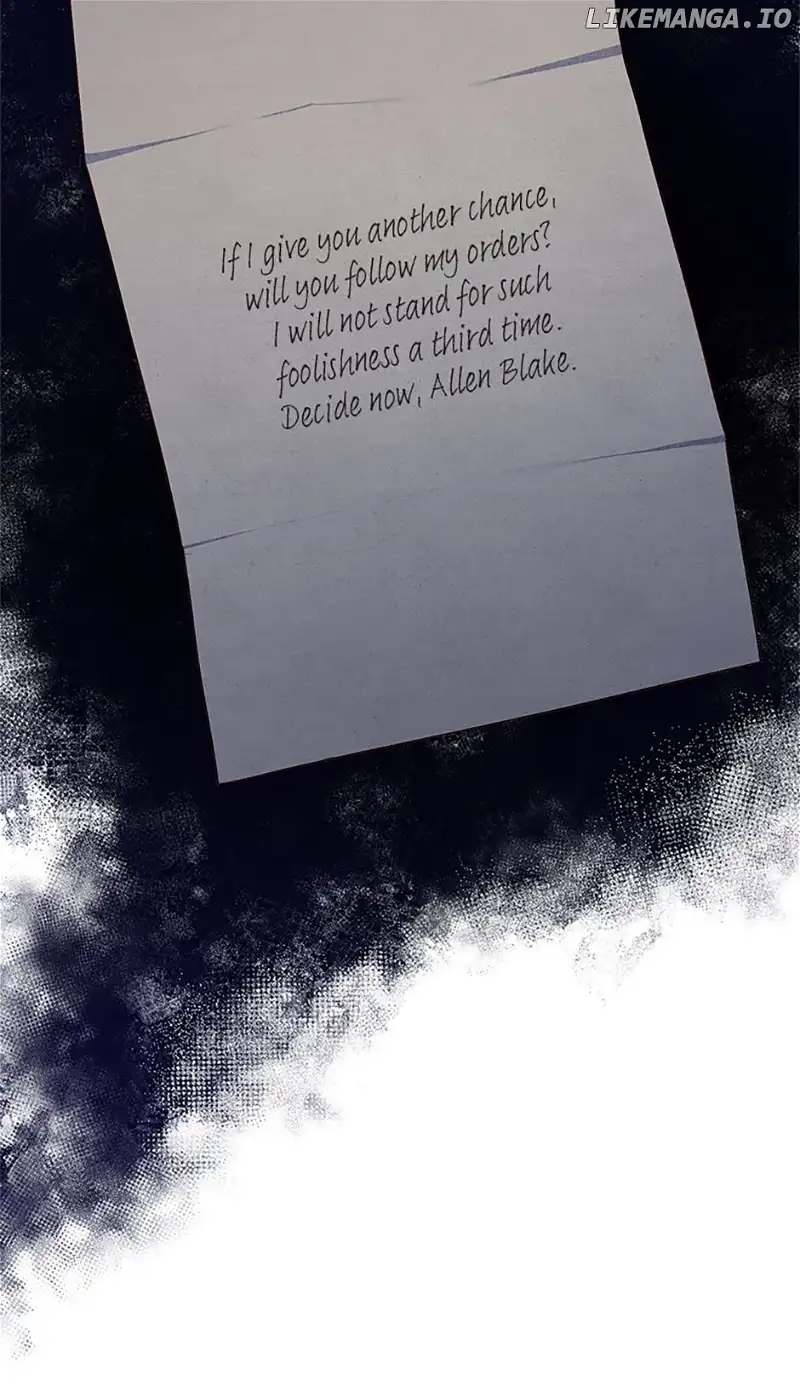 LIKEMANGA.IO
If I give you another chance,
will you follow my orders?
I will not stand for such
foolishness a third time.
Decide now, Allen Blake.